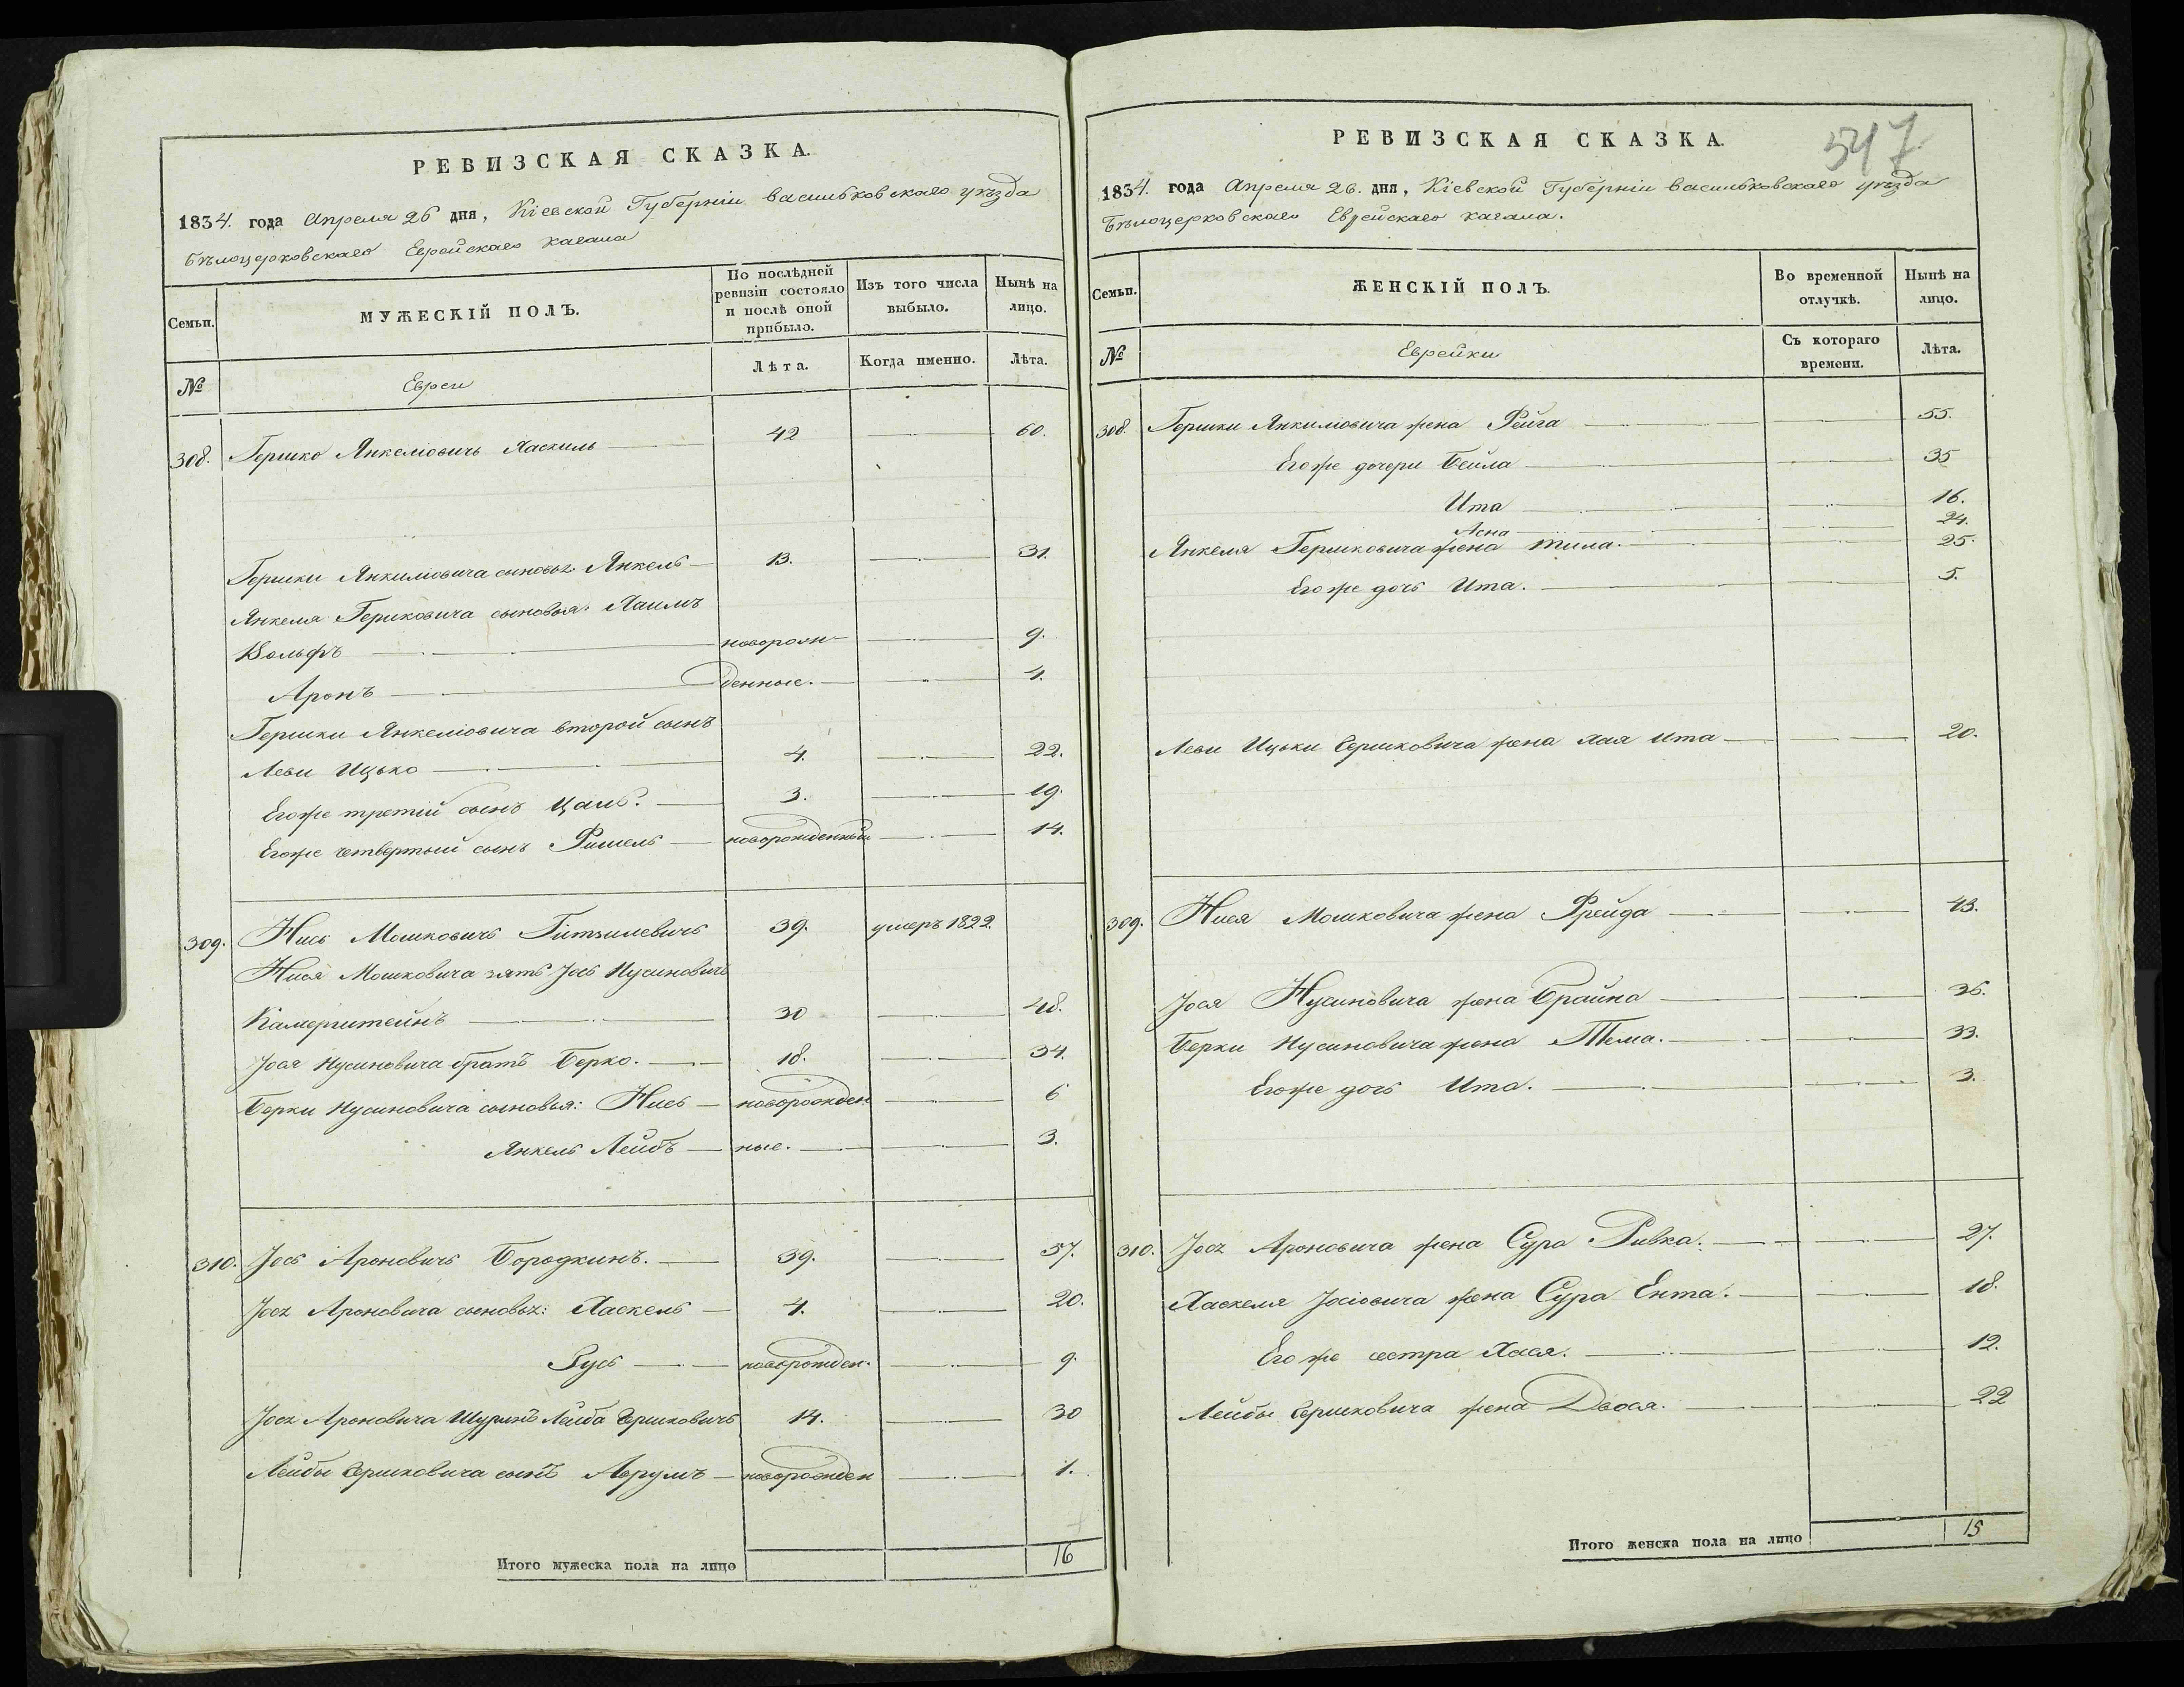 РЕВИЗСКАЯ СКАЗКА.
1834. года Апреля 26 дня, Кіевской Губерніи васильковскаго уѣзда
Бѣлоцерковскаго Еврейскаго кагала
Семьи. МУЖЕСКІЙ ПОЛЪ. По послѣдней ревизіи состояло и послѣ оной прибыло. Изъ того числа выбыло. Нынѣ на лицо.
№ Евреи Лѣта. Когда именно. Лѣта.
308. Гершко Янкеліовичь Хаскиль 42 60.
Гершки Янкиліовича сыновья Янкель 13. 31.
Янкеля Гершковича сыновья: Хаимъ
Вольфъ новорож- 9.
Аронъ денные. 4.
Гершки Янкеліовича второй сынъ
Леви Ицько 4. 22.
Егоже третій сынъ Цаль. 3. 19.
Егоже четвертый сынъ Фишель новорожденный 14.
309. Нись Мошковичь Гитзилевичь 39. умеръ 1822.
Нися Мошковича зять Іось Нусиновичь
Камерштейнъ 30 48.
Іося Нусиновича братъ Берко. 18. 34.
Берки Нусиновича сыновья: Нись новорожден 6
Янкель Лейбъ ные. 3.
310. Іось Ароновичь Бородкинъ. 39. 57.
Іося Ароновича сыновья: Хаскель 4. 20.
Зусь новорожден. 9
Іося Ароновича Шуринъ Лейба Гершковичь 14. 30
Лейбы Гершковича сынъ Аврумъ новорожден 1.
Итого мужеска пола на лицо 16
РЕВИЗСКАЯ СКАЗКА.
547
1834. года Апреля 26. дня, Кіевской Губерніи васильковскаго уѣзда
Бѣлоцерковскаго Еврейскаго кагала.
Семьи. ЖЕНСКІЙ ПОЛЪ. Во временной отлучкѣ. Нынѣ на лицо.
№ Еврейки Съ котораго времени. Лѣта.
308. Гершки Янкиліовича жена Фейга 55.
Егоже дочери Бейла 35
Ита 16.
Асна 24.
Янкеля Гершковича жена Тила. 25.
Егоже дочь Ита. 5.
Леви Ицьки Гершковича жена Хая Ита 20.
309. Нися Мошковича жена Фрейда 43.
Іося Нусиновича жена Брайна 36.
Берки Нусиновича жена Тема. 33.
Егоже дочь Ита. 3.
310. Іося Ароновича жена Сура Ривка. 27.
Хаскеля Іосіовича жена Сура Ента. 18.
Его же сестра Хася. 12.
Лейбы Гершковича жена Двося. 22
Итого женска пола на лицо 15